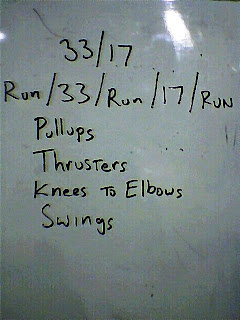 33/17
Run/33/Run/17/RUN
Pullups
Thrusters
Knees To Elbows
Swings